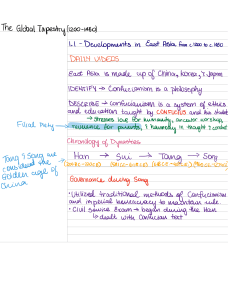 The Global Tapestry (1200-1450)
1.1 - Developments in East Asia from c.1200 to c.1450
DAILY VIDEOS
East Asia is made up of China, Korea, & Japan
IDENTIFY → Confucianism is a philosophy
DESCRIBE → confucianism is a system of ethics
and education taught by CONFUCIUS and his
→ stresses love for humanity, ancestor worship,
Filial Piety
reverence for parents, & harmony in thought & conduct
Chronology of Dynasties
Han → Sui → Tang → Song
Tang & Song are
considered the
golden age of
China
Governance during Song
• Utilized traditional methods of Confucianism
and imperial bureaucracy to maintain rule.
• Civil Service Exam → began during the Han
↳ deals with Confucian text